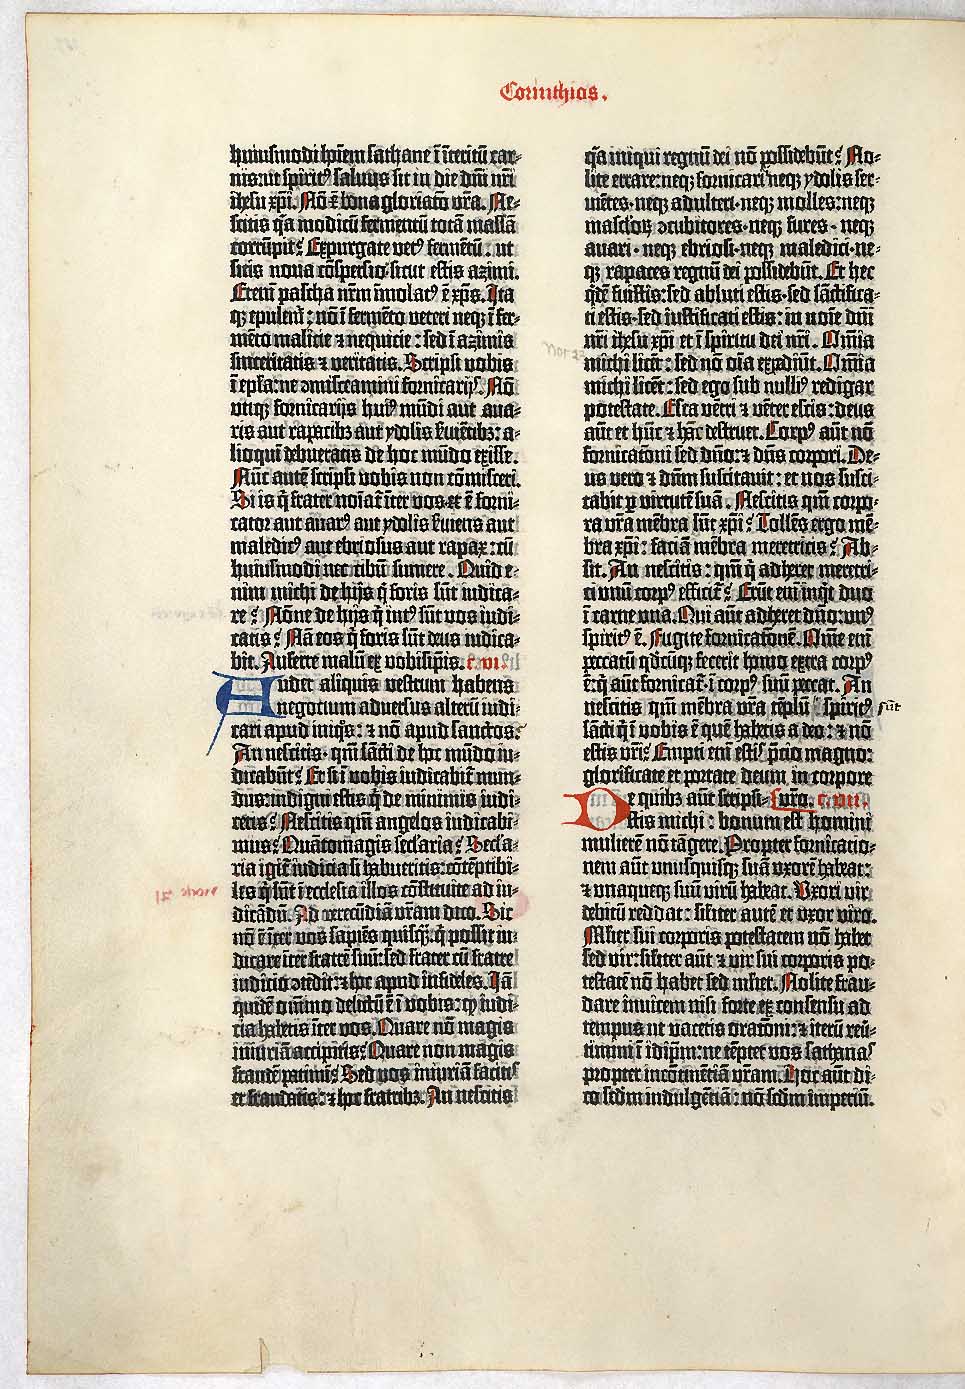 Corinthios.
huiusmodi ho̅i̅em sathane i̅ i̅teritu̅ car-
nis: ut spirit⁹ saluus sit in die dn̅i nr̅i
ihesu xp̅i. No̅ e̅ bona gloriatio vr̅a. Ne-
scitis q̅a modicu̅ fermentu̅ tota̅ massa̅
corru̅pit? Expurgate vet⁹ ferme̅tu̅: ut
sitis noua co̅spersio·sicut estis azimi.
Etenim pascha nr̅m i̅molat⁹ e̅ xp̅s. Ita
qꝫ epulem̅: no̅ i̅ ferme̅to veteri neqꝫ i̅ fer-
me̅to malicie ⁊ nequicie: sed i̅ azimis
sinceritatis ⁊ veritatis. Scripsi vobis
i̅ epl̅a: ne ꝯmisceamini fornicarijs. No̅
vtiqꝫ fornicarijs hui⁹ mu̅di aut aua-
ris aut rapacibꝫ aut ydolis s̅uie̅tibꝫ: a-
lioqui debueratis de hoc mu̅do exisse.
Nu̅c aute̅ scripsi vobis non co̅misceri.
Si is q̅ frater no̅i̅at̅ i̅ter vos et e̅ forni-
cator aut auar⁹ aut ydolis s̅uiens aut
maledic⁹ aut ebriosus aut rapax: cu̅
huiusmodi nec cibu̅ sumere. Quid e-
nim michi de hijs q̅ foris su̅t iudica-
re? No̅ne de hijs q̅ int⁹ su̅t vos iudi-
catis? Na̅ eos q̅ foris su̅t deus iudica-
bit. Auferte malu̅ ex vobisip̅is. c. vi.
Audet aliquis vestrum habens
negotium aduersus alteru̅ iudi-
cari apud iniq̅s: ⁊ no̅ apud sanctos?
An nescitis· qm̅ sa̅cti de hoc mu̅do iu-
dicabu̅t? Et si i̅ vobis iudicabit̅ mun-
dus: indigni estis q̅ de minimis iudi-
cetis? Nescitis qm̅ angelos iudicabi-
mus? Qua̅tomagis secl̅aria? Secl̅a-
ria igit̅ iudicia si habueritis: co̅te̅ptibi-
les q̅ su̅t i̅ ecclesia illos co̅stituite ad iu-
dica̅du̅. Ad verecu̅dia̅ vr̅am dico. Sic
no̅ e̅ i̅ter vos sapie̅s quisq̅· q̅ possit iu-
dicare i̅ter fratre̅ suu̅: sed frater cu̅ fratre
iudicio ꝯtedit: ⁊ hoc apud i̅fideles. Ia̅
quide̅ o̅mino delictu̅ e̅ i̅ vobis: qꝫ iudi-
cia habetis i̅ter vos. Quare no̅ magis
iniuria̅ accipitis? Quare non magis
fraude̅ patimini? Sed vos iniuria̅ facitis
et fraudatis: ⁊ hoc fratribꝫ. An nescitis
q̅a iniqui regnu̅ dei no̅ possidebu̅t? No-
lite errare: neqꝫ fornicarij neqꝫ ydolis ser-
uie̅tes· neqꝫ adulteri· neqꝫ molles: neqꝫ
masclo̅ꝝ ꝯcubitores· neqꝫ fures· neqꝫ
auari· neqꝫ ebriosi· neqꝫ maledici· ne-
qꝫ rapaces regnu̅ dei possidebu̅t. Et hec
q̅de̅ fuistis: sed abluti estis· sed sa̅ctifica-
ti estis· sed iustificati estis: in no̅i̅e dn̅i
nr̅i ihesu xp̅i et i̅ spiritu dei nr̅i. Om̅ia
michi lice̅t: sed no̅ o̅i̅a expediu̅t. Om̅ia
michi lice̅t: sed ego sub nulli⁹ redigar
potestate. Esca ve̅tri ⁊ ve̅ter escis: deus
au̅t et hu̅c ⁊ ha̅c destruet. Corp⁹ au̅t no̅
fornicatio̅i sed dn̅o: ⁊ dn̅s corpori. De-
us vero ⁊ dn̅m suscitauit: et nos susci-
tabit p̲ virtute̅ sua̅. Nescitis qm̅ corpo-
ra vr̅a me̅bra su̅t xp̅i? Tolle̅s ergo me̅-
bra xp̅i: facia̅ me̅bra meretricis? Ab-
sit. An nescitis: qm̅ q̅ adheret meretri-
ci vnu̅ corp⁹ efficit̅? Eru̅t eni̅ inq̅t duo
i̅ carne vna. Qui au̅t adheret dn̅o: vn⁹
spirit⁹ e̅. Fugite fornicatio̅ne̅. Om̅e eni̅
peccatu̅ qd̅cu̅qꝫ fecerit homo extra corp⁹
e̅: q̅ au̅t fornicat̅· i̅ corp⁹ suu̅ peccat. An
nescitis qm̅ me̅bra vr̅a te̅plu̅ spirit⁹ su̅t
sa̅cti q̅ i̅ vobis e̅ que̅ habetis a deo: ⁊ no̅
estis vr̅i? Empti eni̅ estis p̅cio magno:
glorificate et portate deum in corpore
De quibꝫ au̅t scripsi- vr̅o. c. vii.
stis michi: bonum est homini
muliere̅ no̅ ta̅gere. Propter fornicatio-
nem au̅t vnusquisqꝫ sua̅ vxore̅ habeat:
⁊ vnaqueqꝫ suu̅ viru̅ habeat. Vxori vir
debitu̅ reddat: similiter aute̅ et vxor viro.
Mulier sui corporis potestatem no̅ habet
sed vir: similiter au̅t ⁊ vir sui corporis po-
testate̅ no̅ habet sed mulier. Nolite frau-
dare inuicem nisi forte ex consensu ad
tempus ut vacetis oratio̅ni: ⁊ iteru̅ reu̅-
timini i̅ idip̅m: ne te̅ptet vos sathanas
propter inco̅tine̅tia̅ vr̅am. Hoc au̅t di-
co scd̅m indulge̅tia̅: no̅ scd̅m imperiu̅.